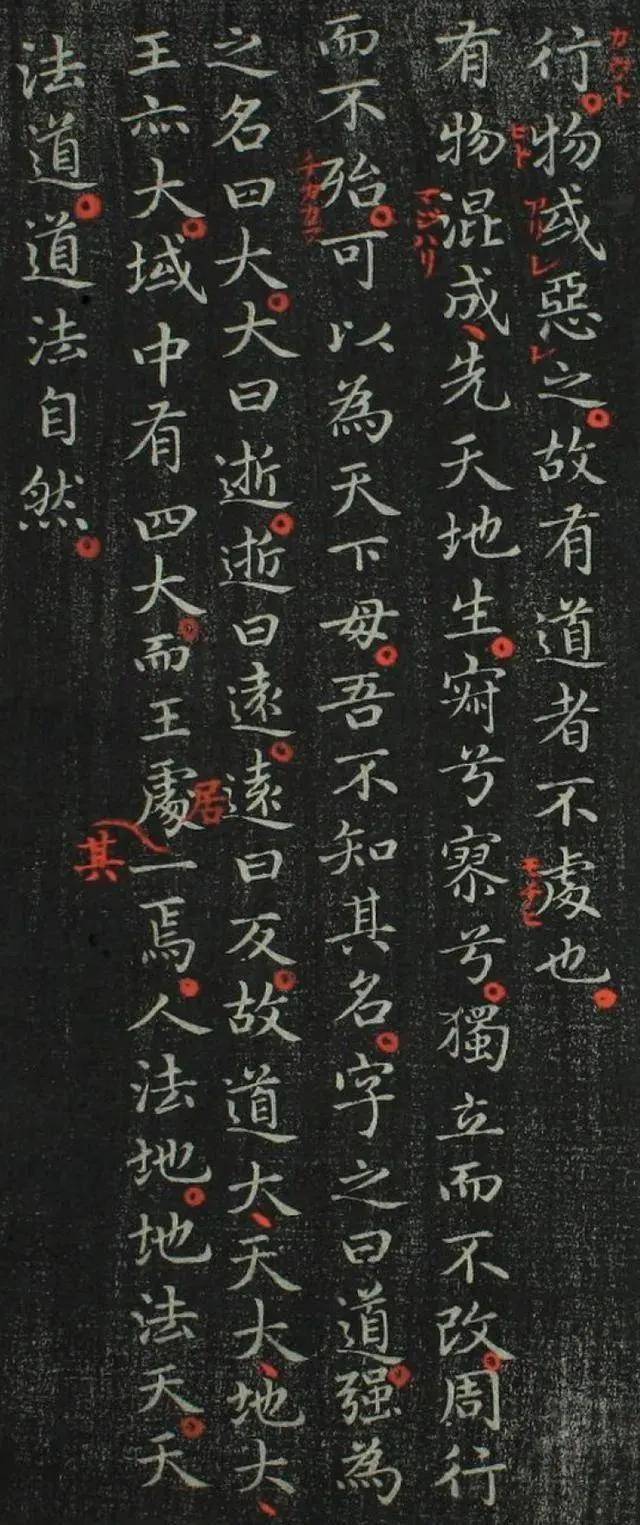 行。物或惡之。故有道者不處也。
有物混成、先天地生。寂兮寥兮。獨立而不改。周行
而不殆。可以為天下母。吾不知其名。字之曰道。强為
之名曰大。大曰逝。逝曰遠。遠曰反。故道大、天大、地大、
王亦大。域中有四大。而王處一焉。人法地。地法天。天
法道。道法自然。
カウト
ヒト
アリレ
レ
モチヒ
マジハリ
チカカラ
居
其